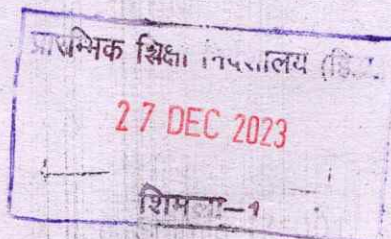 प्रारम्भिक शिक्षा निदेशालय (हि.प्र.
27 DEC 2023
शिमला-1